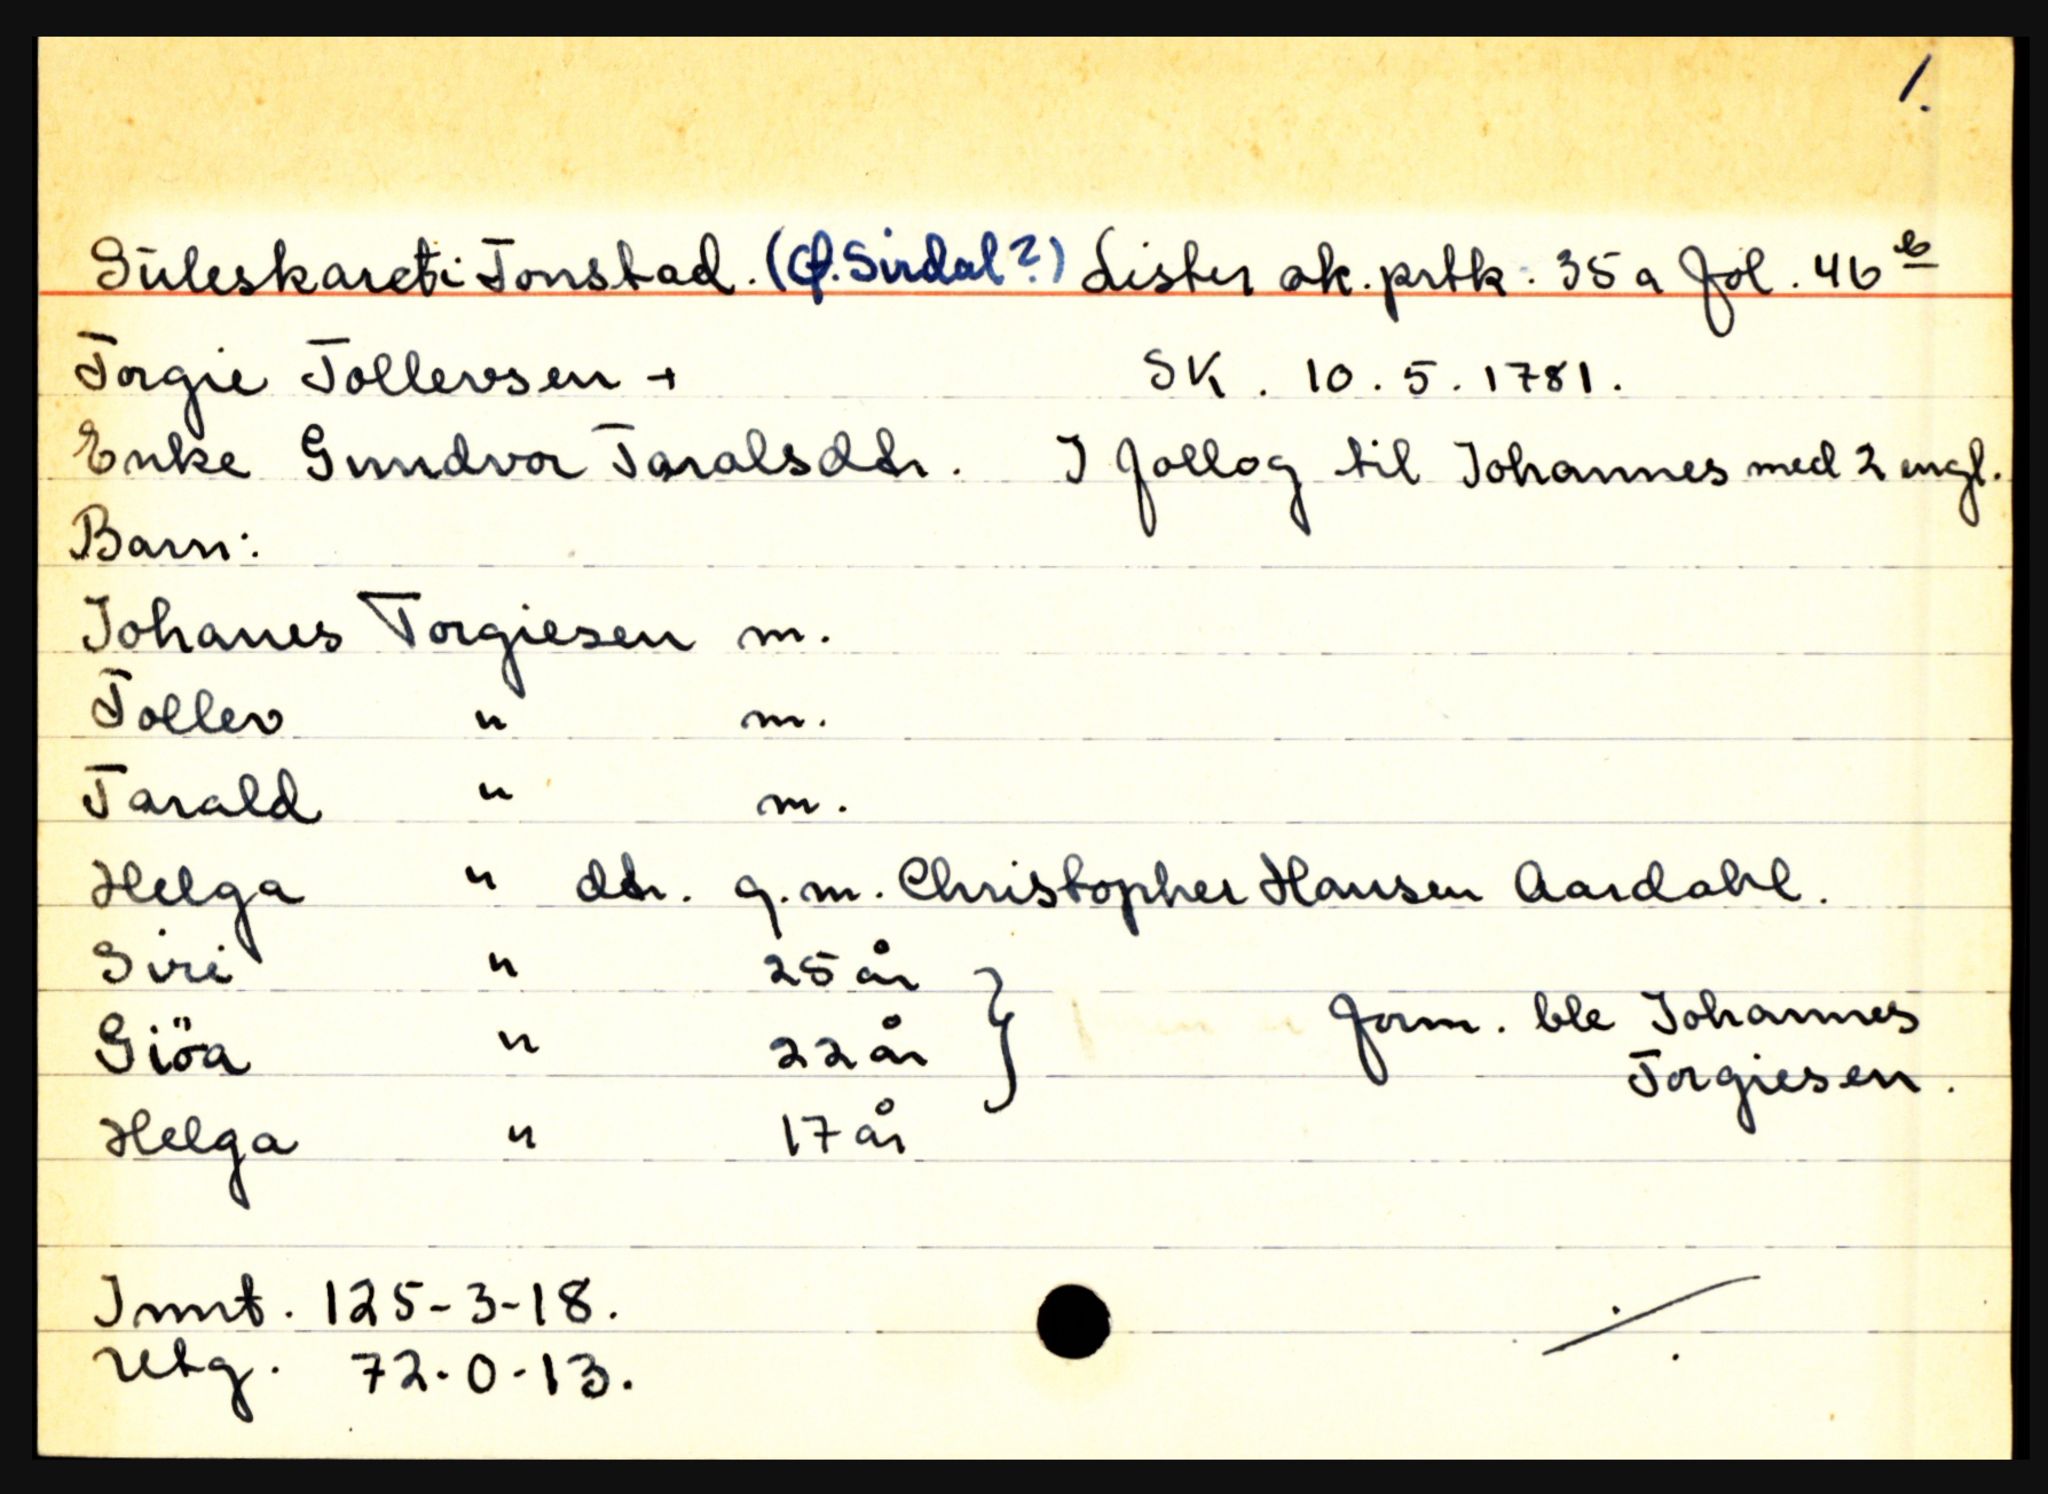 1.
Suleskaret i Tonstad. (Ø. Sirdal?) Lister sk. prtk. 35 a fol. 46 b
Torgie Tollevsen + SK. 10.5.1781.
Enke Gundvor Taralsdtr. I follog til Johannes med 2 ungl.
Barn:
Johanes Torgiesen m.
Tollev " m.
Tarald " m.
Helga " dtr. g.m. Christopher Hansen Aardahl.
Siri " 25 år
Giöa " 22 år
form. ble Johannes
Torgiesen.
Helga " 17 år
Innt. 125-3-18.
Utg. 72-0-13.